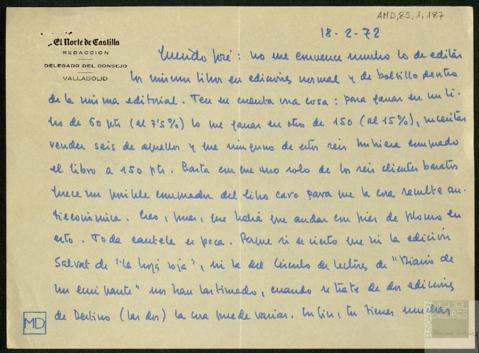 AMD,85,1,187
18-2-72
El Norte de Castilla
REDACCION
DELEGADO DEL CONSEJO
VALLADOLID
Querido José: no me convence mucho lo de editar
los mismos libros en ediciones normal y de bolsillo dentro
de la misma editorial. Ten en cuenta una cosa: para ganar en un li-
bro de 60 pts (al 7'5%) lo que ganas en otro de 150 (al 15%), necesitas
vender seis de aquellos y que ninguno de estos seis hubiera comprado
el libro a 150 pts. Basta con que uno solo de los seis clientes baratos
fuese un posible comprador del libro caro para que la cosa resulte an-
tieconómica. Creo, pues, que habrá que andar con pies de plomo en
esto. Toda cautela es poca. Porque si es cierto que ni la edición
Salvat de "La hoja roja", ni la del Círculo de Lectores de "Diario de
un emigrante" nos han lastimado, cuando se trate de dos ediciones
de Destino (las dos) la cosa puede variar. En fin, tú tienes muchas
MD